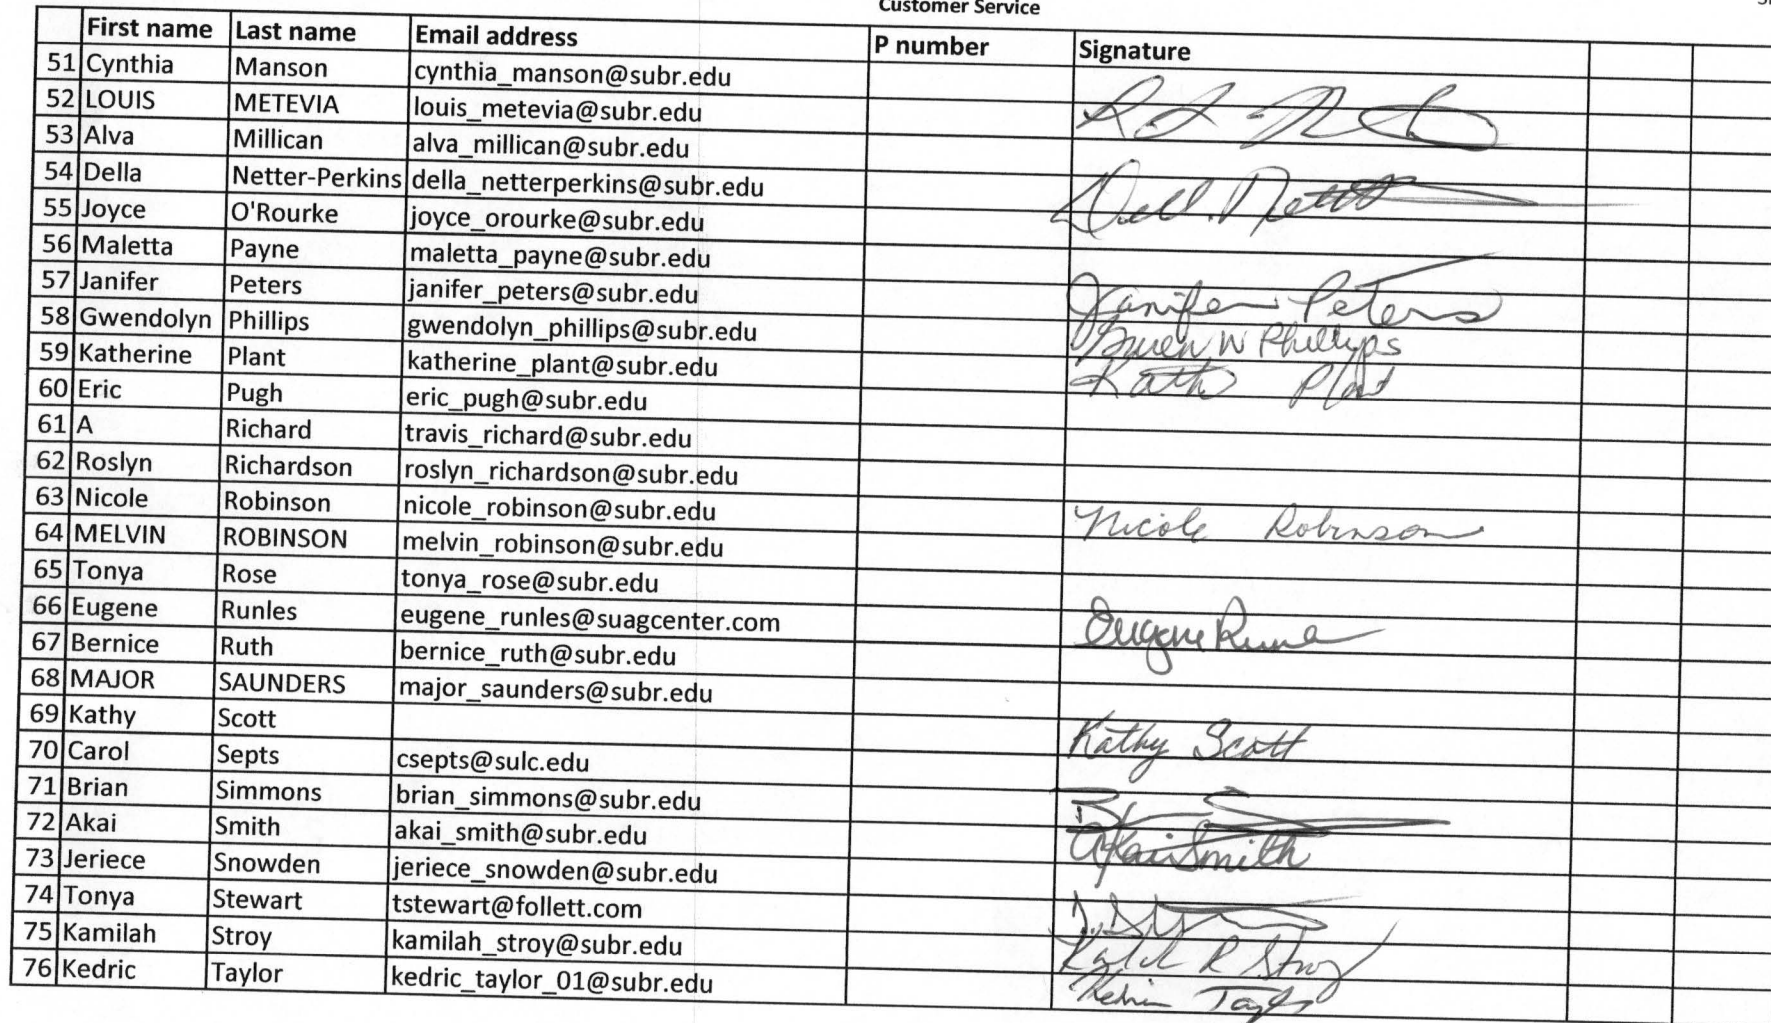 Customer Service
First name Last name Email address P number Signature
51 Cynthia Manson cynthia_manson@subr.edu
52 LOUIS METEVIA louis_metevia@subr.edu
53 Alva Millican alva_millican@subr.edu
54 Della Netter-Perkins della_netterperkins@subr.edu
55 Joyce O'Rourke joyce_orourke@subr.edu
56 Maletta Payne maletta_payne@subr.edu
57 Janifer Peters janifer_peters@subr.edu Janifer Peters
58 Gwendolyn Phillips gwendolyn_phillips@subr.edu Gwen W Phillips
59 Katherine Plant katherine_plant@subr.edu
60 Eric Pugh eric_pugh@subr.edu
61 A Richard travis_richard@subr.edu
62 Roslyn Richardson roslyn_richardson@subr.edu
63 Nicole Robinson nicole_robinson@subr.edu Nicole Robinson
64 MELVIN ROBINSON melvin_robinson@subr.edu
65 Tonya Rose tonya_rose@subr.edu
66 Eugene Runles eugene_runles@suagcenter.com Eugene
67 Bernice Ruth bernice_ruth@subr.edu
68 MAJOR SAUNDERS major_saunders@subr.edu
69 Kathy Scott Kathy Scott
70 Carol Septs csepts@sulc.edu
71 Brian Simmons brian_simmons@subr.edu
72 Akai Smith akai_smith@subr.edu Akai Smith
73 Jeriece Snowden jeriece_snowden@subr.edu
74 Tonya Stewart tstewart@follett.com
75 Kamilah Stroy kamilah_stroy@subr.edu
76 Kedric Taylor kedric_taylor_01@subr.edu